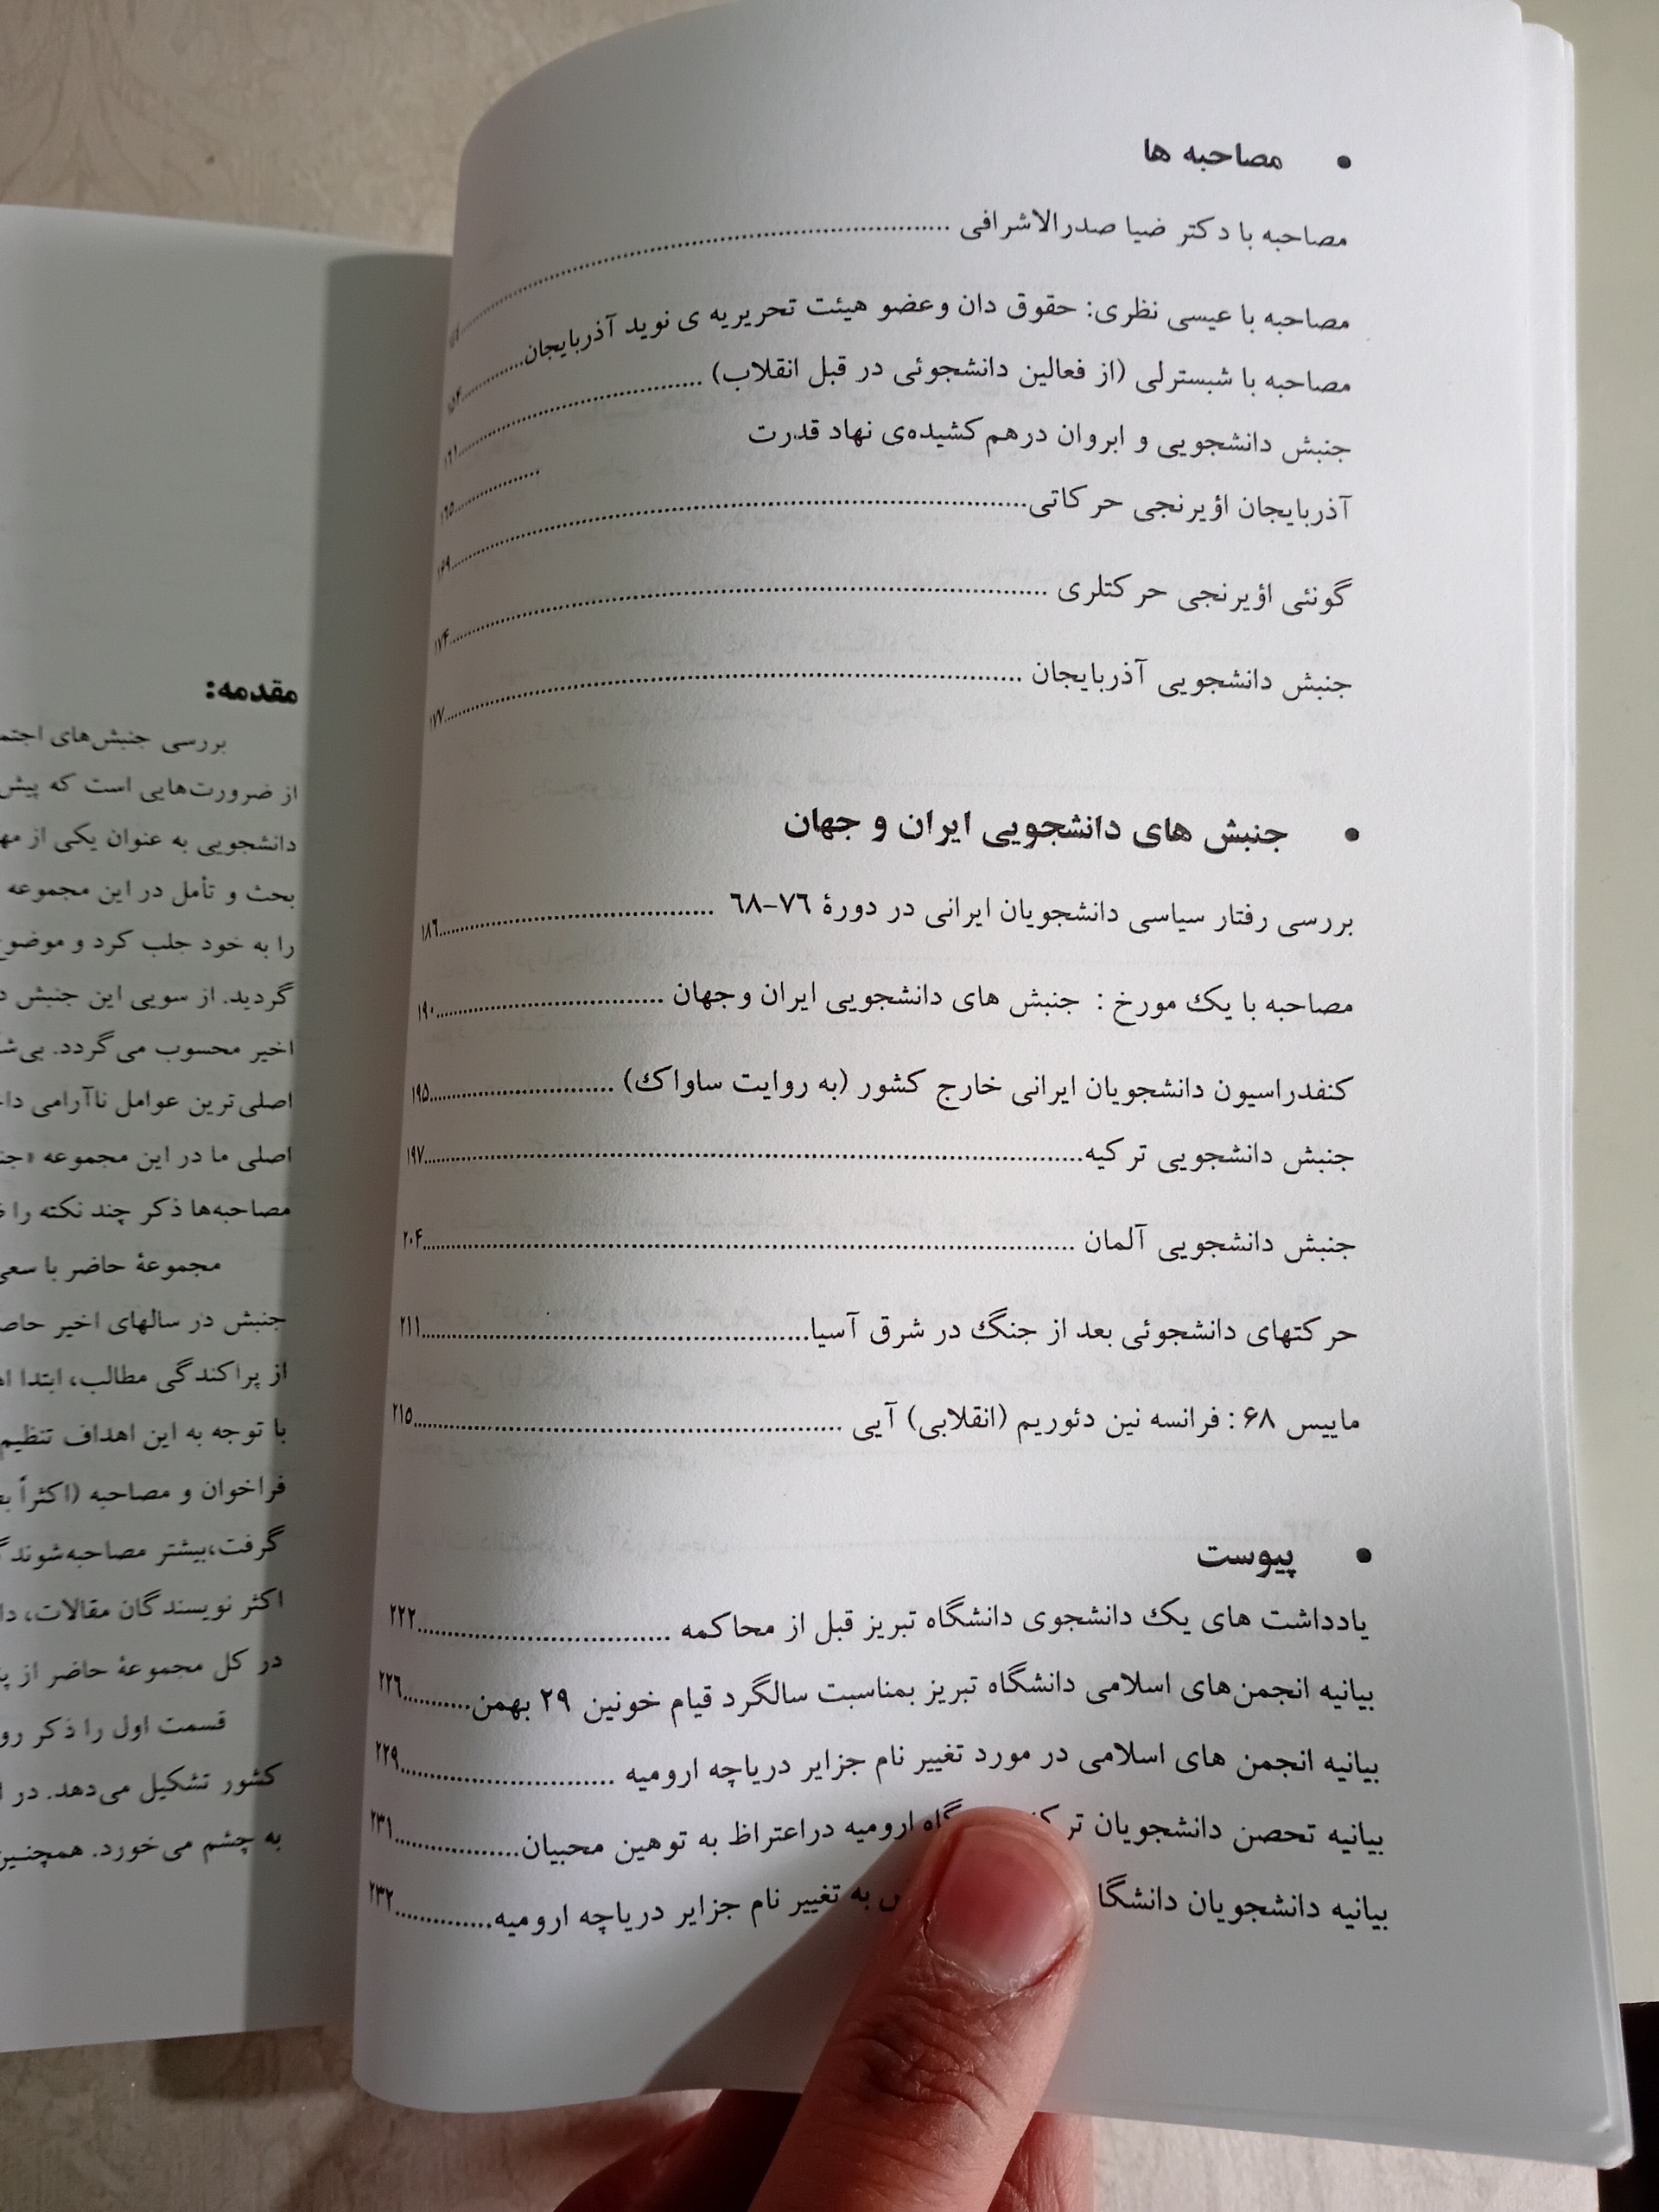 • مصاحبه ها
مصاحبه با دکتر ضیا صدرالاشرافی
مصاحبه با عیسی نظری: حقوق دان وعضو هیئت تحریریه ی نوید آذربایجان ۱۵۲
مصاحبه با شبسترلی (از فعالین دانشجوئی در قبل انقلاب) ۱۶۱
جنبش دانشجویی و ابروان درهم کشیده‌ی نهاد قدرت ۱۶۵
آذربایجان اؤیرنجی حرکاتی ۱۶۹
گونئی اؤیرنجی حرکتلری ۱۷۴
جنبش دانشجویی آذربایجان ۱۷۷
• جنبش های دانشجویی ایران و جهان
بررسی رفتار سیاسی دانشجویان ایرانی در دورهٔ ۷۶-۶۸ ۱۸۶
مصاحبه با یک مورخ : جنبش های دانشجویی ایران وجهان ۱۹۰
کنفدراسیون دانشجویان ایرانی خارج کشور (به روایت ساواک) ۱۹۵
جنبش دانشجویی ترکیه ۱۹۷
جنبش دانشجویی آلمان ۲۰۴
حرکتهای دانشجوئی بعد از جنگ در شرق آسیا ۲۱۱
ماییس ۶۸ : فرانسه نین دئوریم (انقلابی) آیی ۲۱۵
• پیوست
یادداشت های یک دانشجوی دانشگاه تبریز قبل از محاکمه ۲۲۲
بیانیه انجمن‌های اسلامی دانشگاه تبریز بمناسبت سالگرد قیام خونین ۲۹ بهمن ۲۲۶
بیانیه انجمن های اسلامی در مورد تغییر نام جزایر دریاچه ارومیه ۲۲۹
بیانیه تحصن دانشجویان ارومیه دراعتراظ به توهین محبیان ۲۳۱
بیانیه دانشجویان به تغییر نام جزایر دریاچه ارومیه ۲۳۲
مقدمه:
بررسی جنبش‌های
از ضرورت‌هایی است که پیش
دانشجویی به عنوان یکی از
بحث و تأمل در این مجموعه
را به خود جلب کرد و
گردید. از سویی این جنبش
اخیر محسوب می‌گردد.
اصلی‌ترین عوامل ناآرامی
اصلی ما در این مجموعه
مصاحبه‌ها ذکر چند نکته را
مجموعهٔ حاضر با سعی
جنبش در سالهای اخیر
از پراکندگی مطالب، ابتدا
با توجه به این اهداف تنظیم
فراخوان و مصاحبه (اکثراً
گرفت،بیشتر
اکثر نویسندگان مقالات،
در کل مجموعهٔ حاضر از
قسمت اول را ذکر
کشور تشکیل می‌دهد. در
به چشم می‌خورد. همچنین